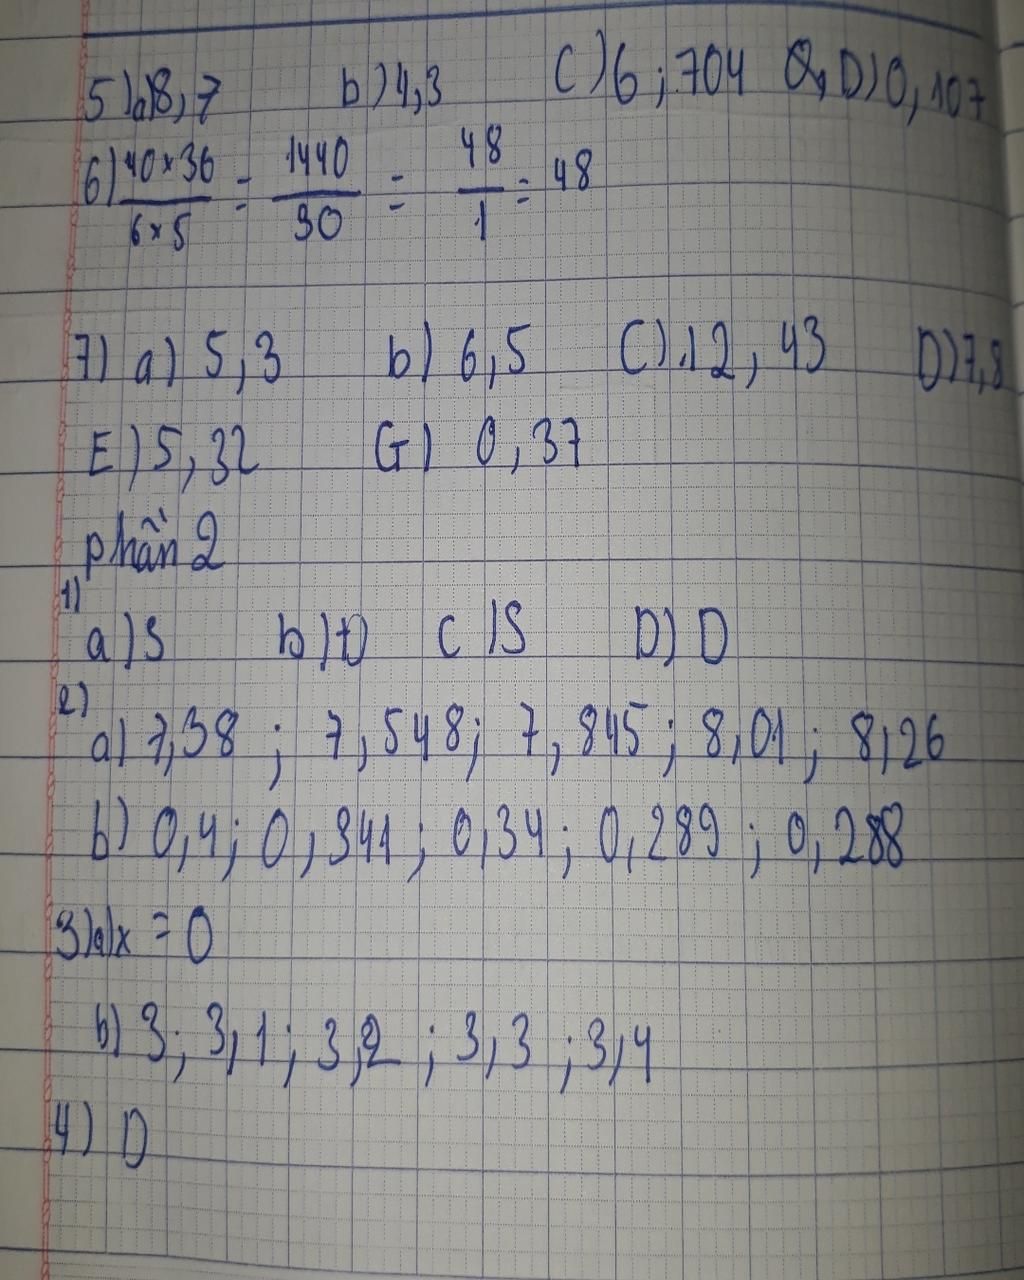 5) a) 8,7 b) 4,3 C) 6;704 D) 0,107
6) 40×36 / 6×5 = 1440 / 30 = 48 / 1 = 48
7) a) 5,3 b) 6,5 C) 12,43 D) 7,8
E) 5,32 G) 0,37
phần 2
1)
a) S b) Đ C) S D) D
2)
a) 7,38 ; 7,548; 7,845; 8,01; 8,26
b) 0,4; 0,341; 0,34; 0,289; 0,288
3) a) x = 0
b) 3; 3,1; 3,2; 3,3; 3,4
4) D